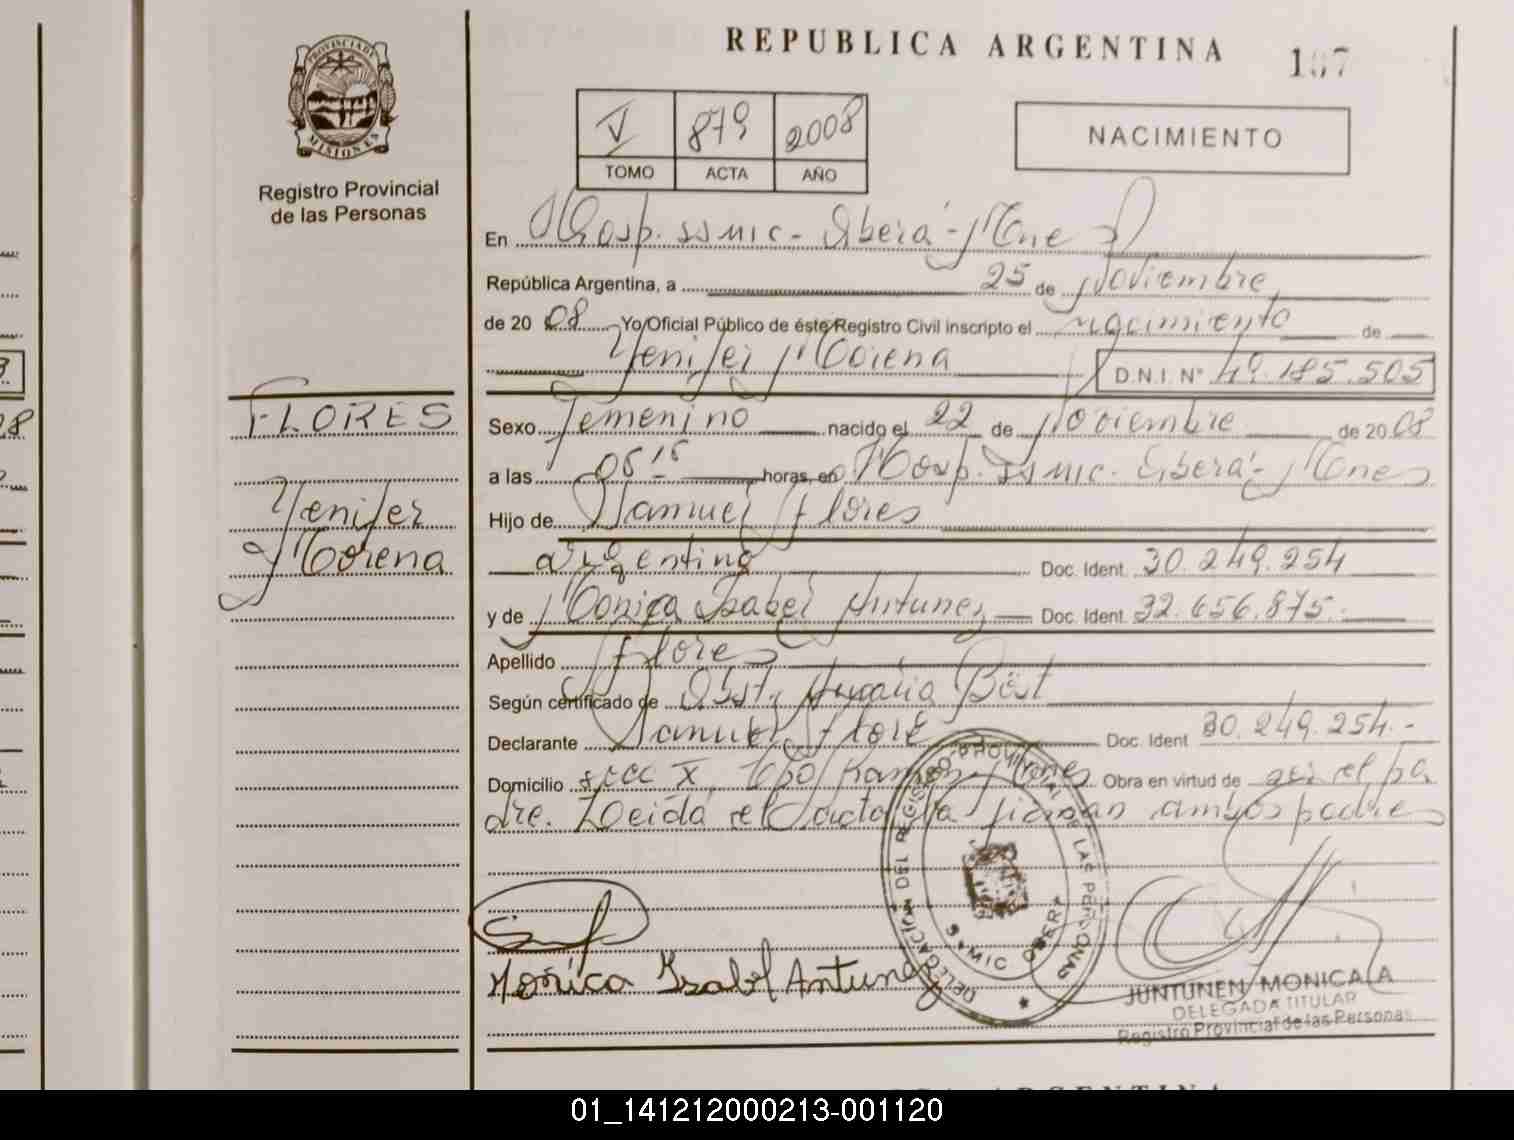 REPUBLICA ARGENTINA
107
PROVINCIA DE
MISIONES
Registro Provincial
de las Personas
V 879 2008
TOMO ACTA AÑO
NACIMIENTO
En Hosp. SSMIC - Oberá - Mnes
República Argentina, a 25 de Noviembre
de 20 08 Yo Oficial Público de éste Registro Civil inscripto el nacimiento de
Yenifer Morena D.N.I. N° 49.185.505
FLORES
Yenifer
Morena
Sexo Femenino nacido el 22 de Noviembre de 20 08
a las 05 15 horas, en Hosp. SSMIC. Oberá - Mnes
Hijo de Samuel Flores
argentino Doc. Ident. 30.249.254
y de Monica Isabel Antunez Doc. Ident. 32.656.875.
Apellido Flores
Según certificado de Obst.
Declarante Samuel Flore Doc. Ident 30.249.254.-
Domicilio Obra en virtud de ser el pa
dre. Leida el acta la firman ambos padres
DELEGACION DEL REGISTRO PROVINCIAL DE LAS PERSONAS
SAMIC OBERA
Monica Isabel Antunez
JUNTUNEN MONICA LA
DELEGADA TITULAR
Registro Provincial de las Personas
01_141212000213-001120